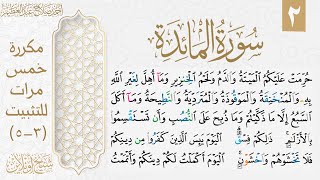 ٢
سورة المائدة
مكررة
خمس
مرات
للتثبيت
(٣-٥)
حُرِّمَتْ عَلَيْكُمُ الْمَيْتَةُ وَالدَّمُ وَلَحْمُ الْخِنزِيرِ وَمَا أُهِلَّ لِغَيْرِ اللَّهِ
بِهِ وَالْمُنْخَنِقَةُ وَالْمَوْقُوذَةُ وَالْمُتَرَدِّيَةُ وَالنَّطِيحَةُ وَمَا أَكَلَ
السَّبُعُ إِلَّا مَا ذَكَّيْتُمْ وَمَا ذُبِحَ عَلَى النُّصُبِ وَأَن تَسْتَقْسِمُوا
بِالْأَزْلَامِ ذَٰلِكُمْ فِسْقٌ الْيَوْمَ يَئِسَ الَّذِينَ كَفَرُوا مِن دِينِكُمْ
فَلَا تَخْشَوْهُمْ وَاخْشَوْنِ الْيَوْمَ أَكْمَلْتُ لَكُمْ دِينَكُمْ وَأَتْمَمْتُ